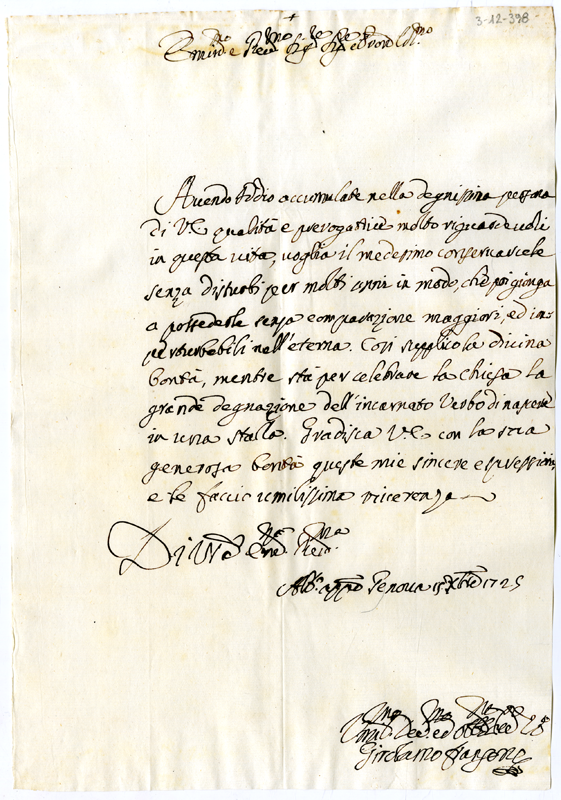 3-12-398
+
Em.mo e Rev.mo Sig.re Sig.re e Pron Col.mo
Avendo Iddio accumulate nella degnissima persona
di V.E. qualità e prerogative molto riguardevoli
in questa vita, voglia il medesimo conservarcele
senza disturbi per molti anni in modo, che poi gionga
a possederle senza comparazione maggiori, ed im-
perturbabili nell'eterna. Così supplico la divina
bontà, mentre stà per celebrare la Chiesa la
grande degnazione dell'incarnato Verbo di nascere
in una stalla. Gradisca V.E. con la sua
generosa bontà queste mie sincere espressioni,
e le faccio umilissima riverenza
Di V.ra Em.za Rev.ma
Alb.o appo Genova 15 Xbre 1725
Um.mo Dev.mo ed Obb.mo
Girolamo